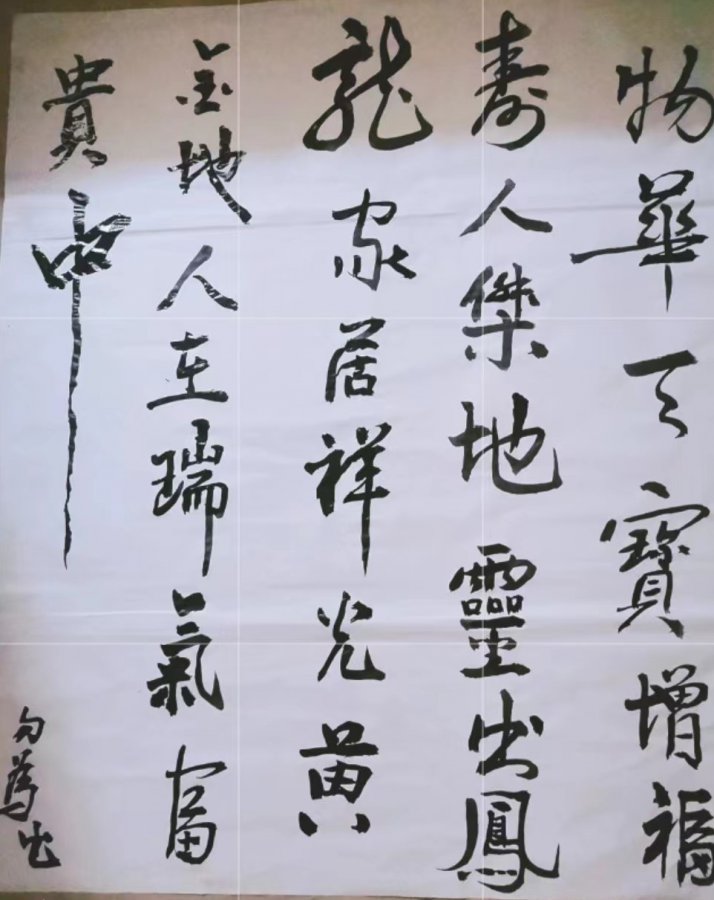 物華天寶增福
壽人傑地靈出鳳
龍家居祥光黄
金地人在瑞氣富
貴中